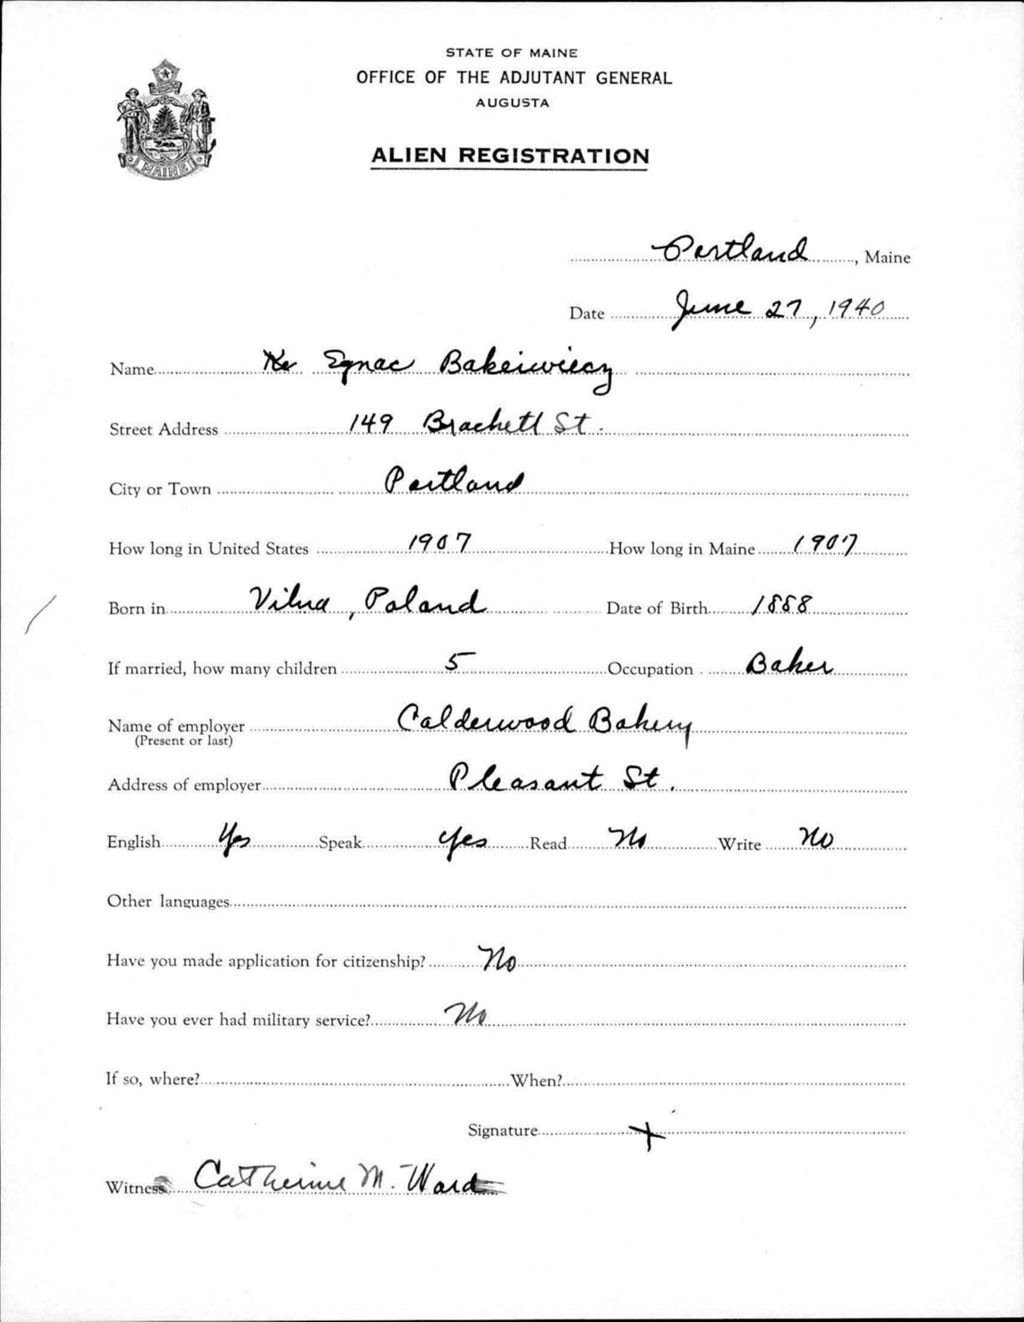 STATE OF MAINE
OFFICE OF THE ADJUTANT GENERAL
AUGUSTA
MAINE
ALIEN REGISTRATION
Portland, Maine
Date June 27, 1940
Name Egnac Bakeiwiecz
Street Address 149 Brachett St.
City or Town Portland
How long in United States 1907 How long in Maine 1907
Born in Vilna, Poland Date of Birth 1888
If married, how many children 5 Occupation Baker
Name of employer Calderwood Bakery
(Present or last)
Address of employer Pleasant St.
English Yes Speak yes Read No Write No
Other languages
Have you made application for citizenship? No
Have you ever had military service? No
If so, where? When?
Signature X
Witness Catherine M. Ward